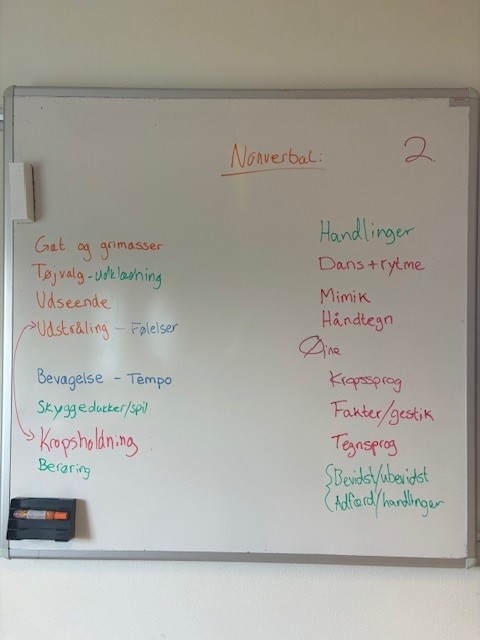 Nonverbal:
2.
Gøt og grimasser
Tøjvalg - udklædning
Udseende
Udstråling - Følelser
Bevægelse - Tempo
Skyggedukker/spil
Kropsholdning
Berøring
Handlinger
Dans + rytme
Mimik
Håndtegn
Øjne
Kropssprog
Fakter/gestik
Tegnsprog
Bevidst/ubevidst
Adfærd/handlinger